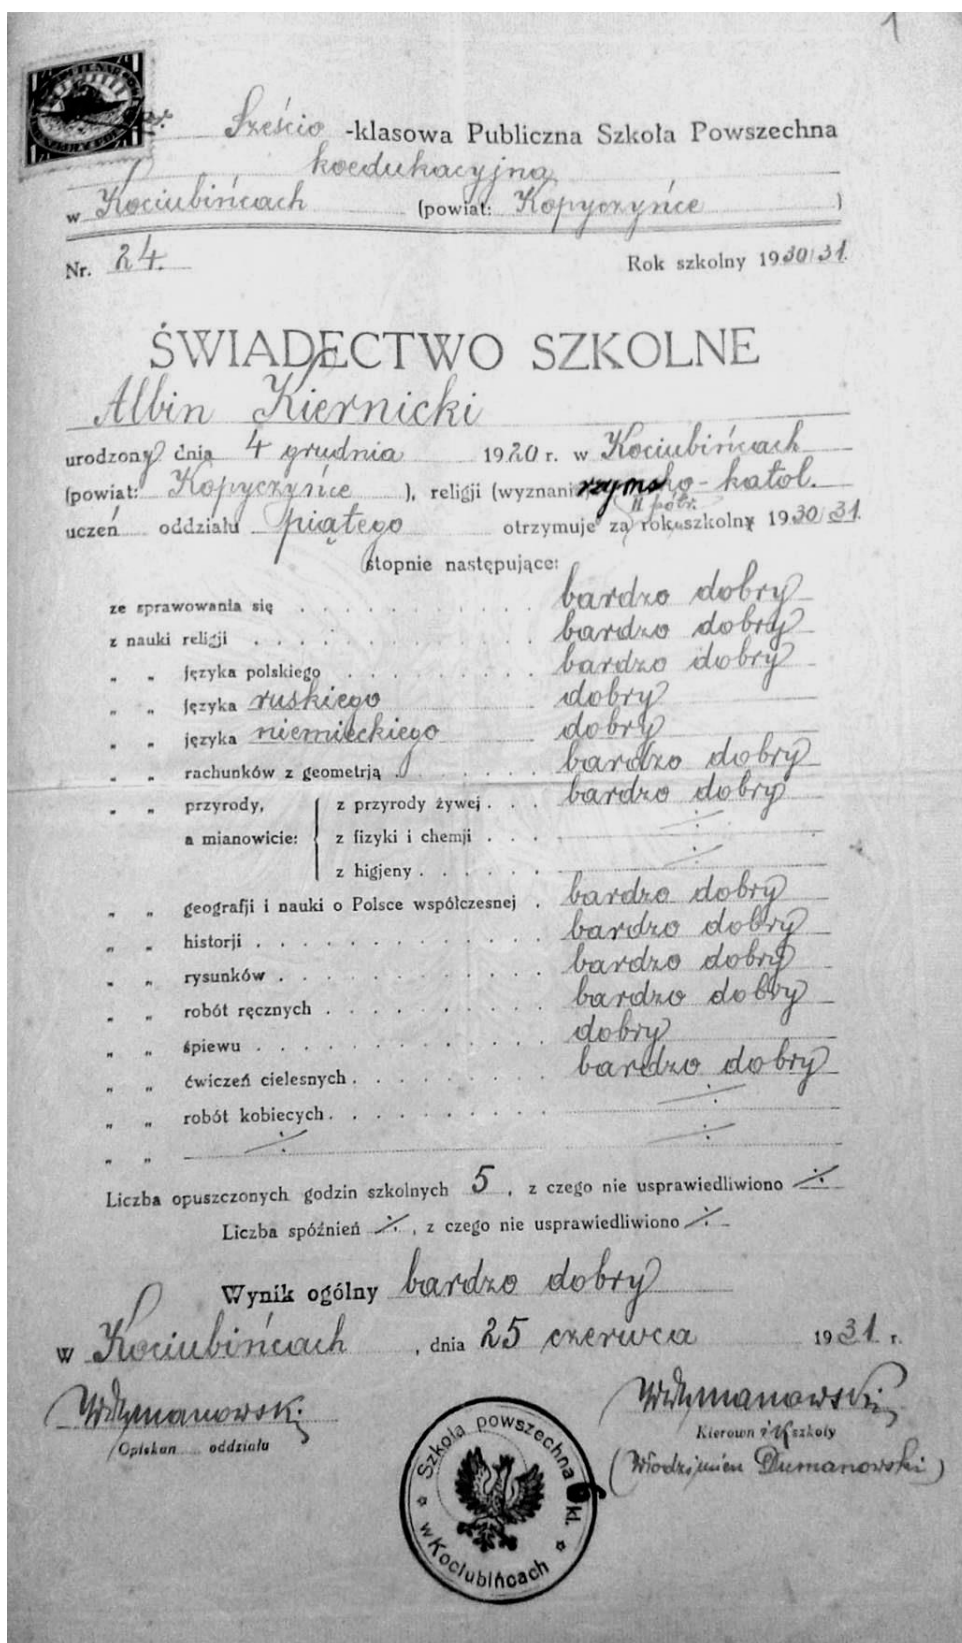 1
Sześcio -klasowa Publiczna Szkoła Powszechna
koedukacyjna
w Kociubińcach (powiat: Kopyczyńce )
Nr. 24. Rok szkolny 1930/31.
ŚWIADECTWO SZKOLNE
Albin Kiernicki
urodzony dnia 4 grudnia 1920 r. w Kociubińcach
(powiat: Kopyczyńce ), religji (wyznani rzymsko-katol.
II półr.
uczeń oddziału piątego otrzymuje za rok szkolny 1930/31.
stopnie następujące:
ze sprawowania się . . . . . . . . bardzo dobry
z nauki religji . . . . . . . . . . bardzo dobry
" " języka polskiego . . . . . . . . bardzo dobry
" " języka ruskiego dobry
" " języka niemieckiego dobry
" " rachunków z geometrją . . . . . . bardzo dobry
" " przyrody, z przyrody żywej . . . bardzo dobry
a mianowicie: z fizyki i chemji . . . ÷
z higjeny . . . . . . ÷
" " geografji i nauki o Polsce współczesnej . bardzo dobry
" " historji . . . . . . . . . . bardzo dobry
" " rysunków . . . . . . . . . . bardzo dobry
" " robót ręcznych . . . . . . . . bardzo dobry
" " śpiewu . . . . . . . . . . dobry
" " ćwiczeń cielesnych . . . . . . . bardzo dobry
" " robót kobiecych . . . . . . . . ÷
" " ÷ ÷
Liczba opuszczonych godzin szkolnych 5, z czego nie usprawiedliwiono ÷
Liczba spóźnień ÷, z czego nie usprawiedliwiono ÷
Wynik ogólny bardzo dobry
w Kociubińcach, dnia 25 czerwca 1931 r.
WDumanowski WDumanowski
/Opiekun oddziału Kierown szkoły
(Włodzimierz Dumanowski)
Szkoła powszechna 6 kl.
w Kociubińcach